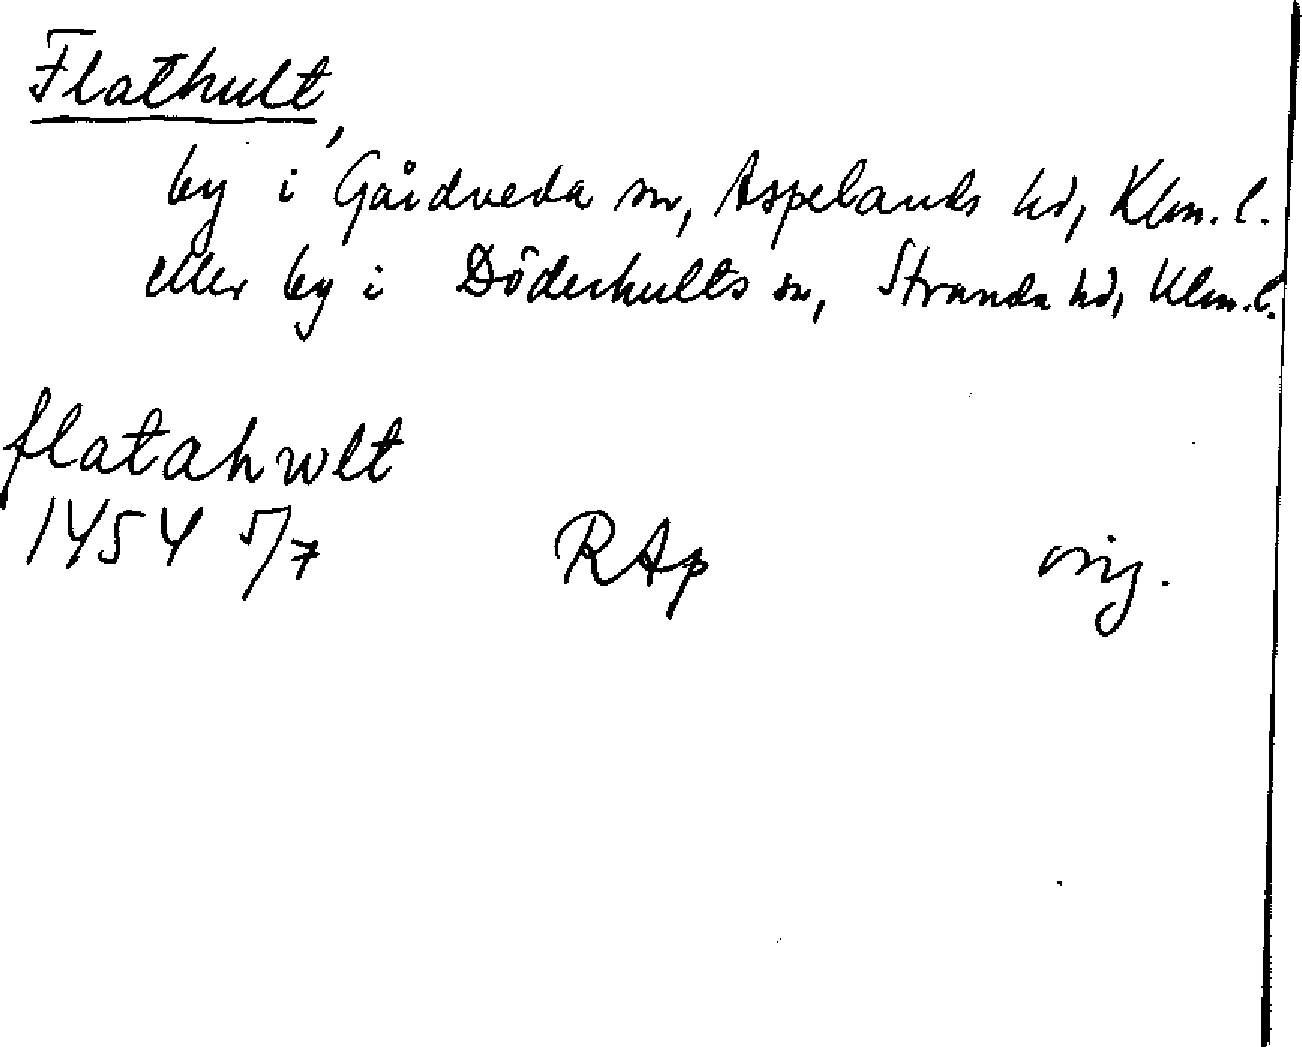 Flathult,
by i Gårdveda sn, Aspelands hd, Klm. l.
eller by i Döderhults sn, Stranda hd, Klm. l.
flatahwlt
1454 5/7 RAp orig.